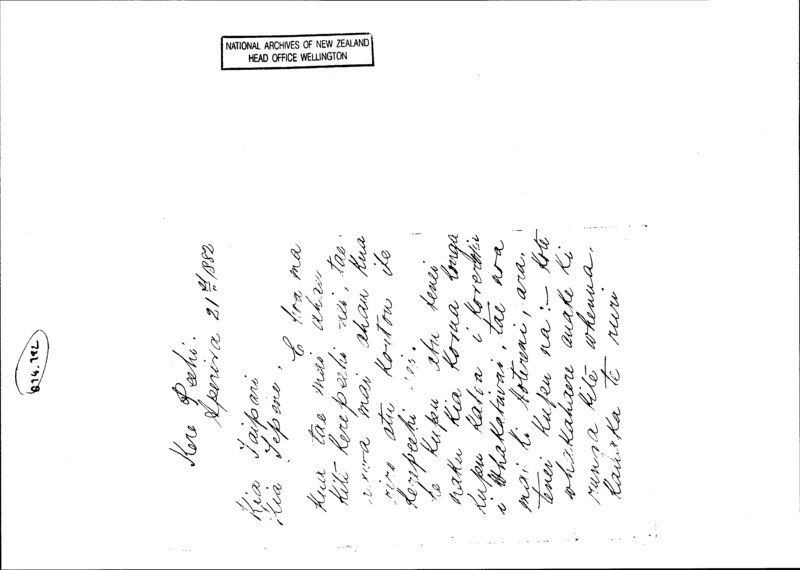 NATIONAL ARCHIVES OF NEW ZEALAND
HEAD OFFICE WELLINGTON
874.792
Kere Peehi.
Aperira 21st 1882
Kia Taipari
Kia Tepene. E hoa ma
Kua tae mai ahau
kite Kerepeehi nei, tae
mai ahau kua
riro atu koutou ite
Kerepeehi nei.
te kupu atu tenei
naku kia korua
kupu katoa i korerotia
i Whakatiwai, tae noa
mai ki Hotereni, ara.
tenei kupu na :— kote
whakahaere anake ki
runga kite whenua.
kauaka te ruri